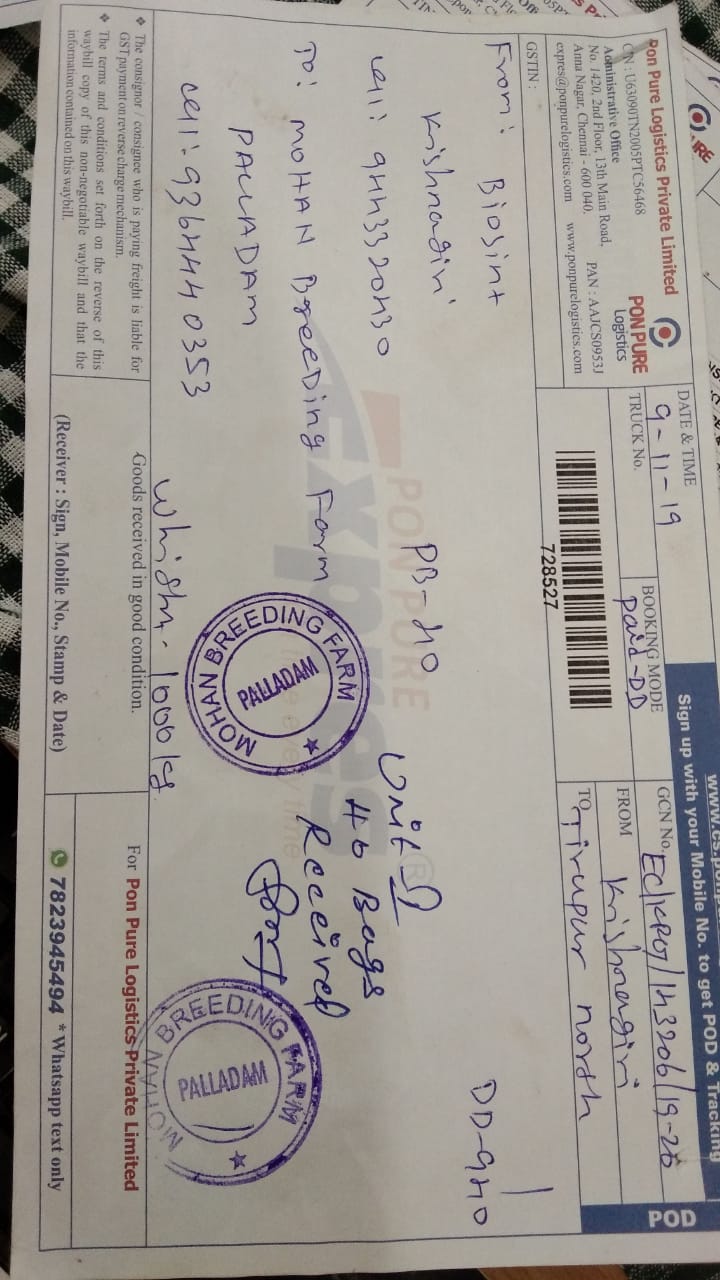 www.es.po
Sign up with your Mobile No. to get POD & Tracking
POD
Pon Pure Logistics Private Limited
CIN : U63090TN2005PTC56468
Administrative Office
No. 1420, 2nd Floor, 13th Main Road,
Anna Nagar, Chennai - 600 040.
PAN : AAJCS0953J
expres@ponpurelogistics.com www.ponpurelogistics.com
PON PURE
Logistics
GSTIN :
DATE & TIME
9-11-19
TRUCK No.
BOOKING MODE
Paid-DD
728527
GCN No.
FROM Krishnagiri
TO Tirupur north
From: Biosint
Krishnagiri
DD-940
PB-40
To: MOHAN BreeDing Farm
PALLADAM
Cell: 9364440353
Unit
40 Bags
Received
MOHAN BREEDING FARM
PALLADAM
MOHAN BREEDING FARM
PALLADAM
PON PURE
Express
❖ The consignor / consignee who is paying freight is liable for
GST payment on reverse charge mechanism.
❖ The terms and conditions set forth on the reverse of this
waybill copy of this non-negotiable waybill and that the
information contained on this waybill.
Goods received in good condition.
(Receiver : Sign, Mobile No., Stamp & Date)
For Pon Pure Logistics Private Limited
7823945494 *Whatsapp text only